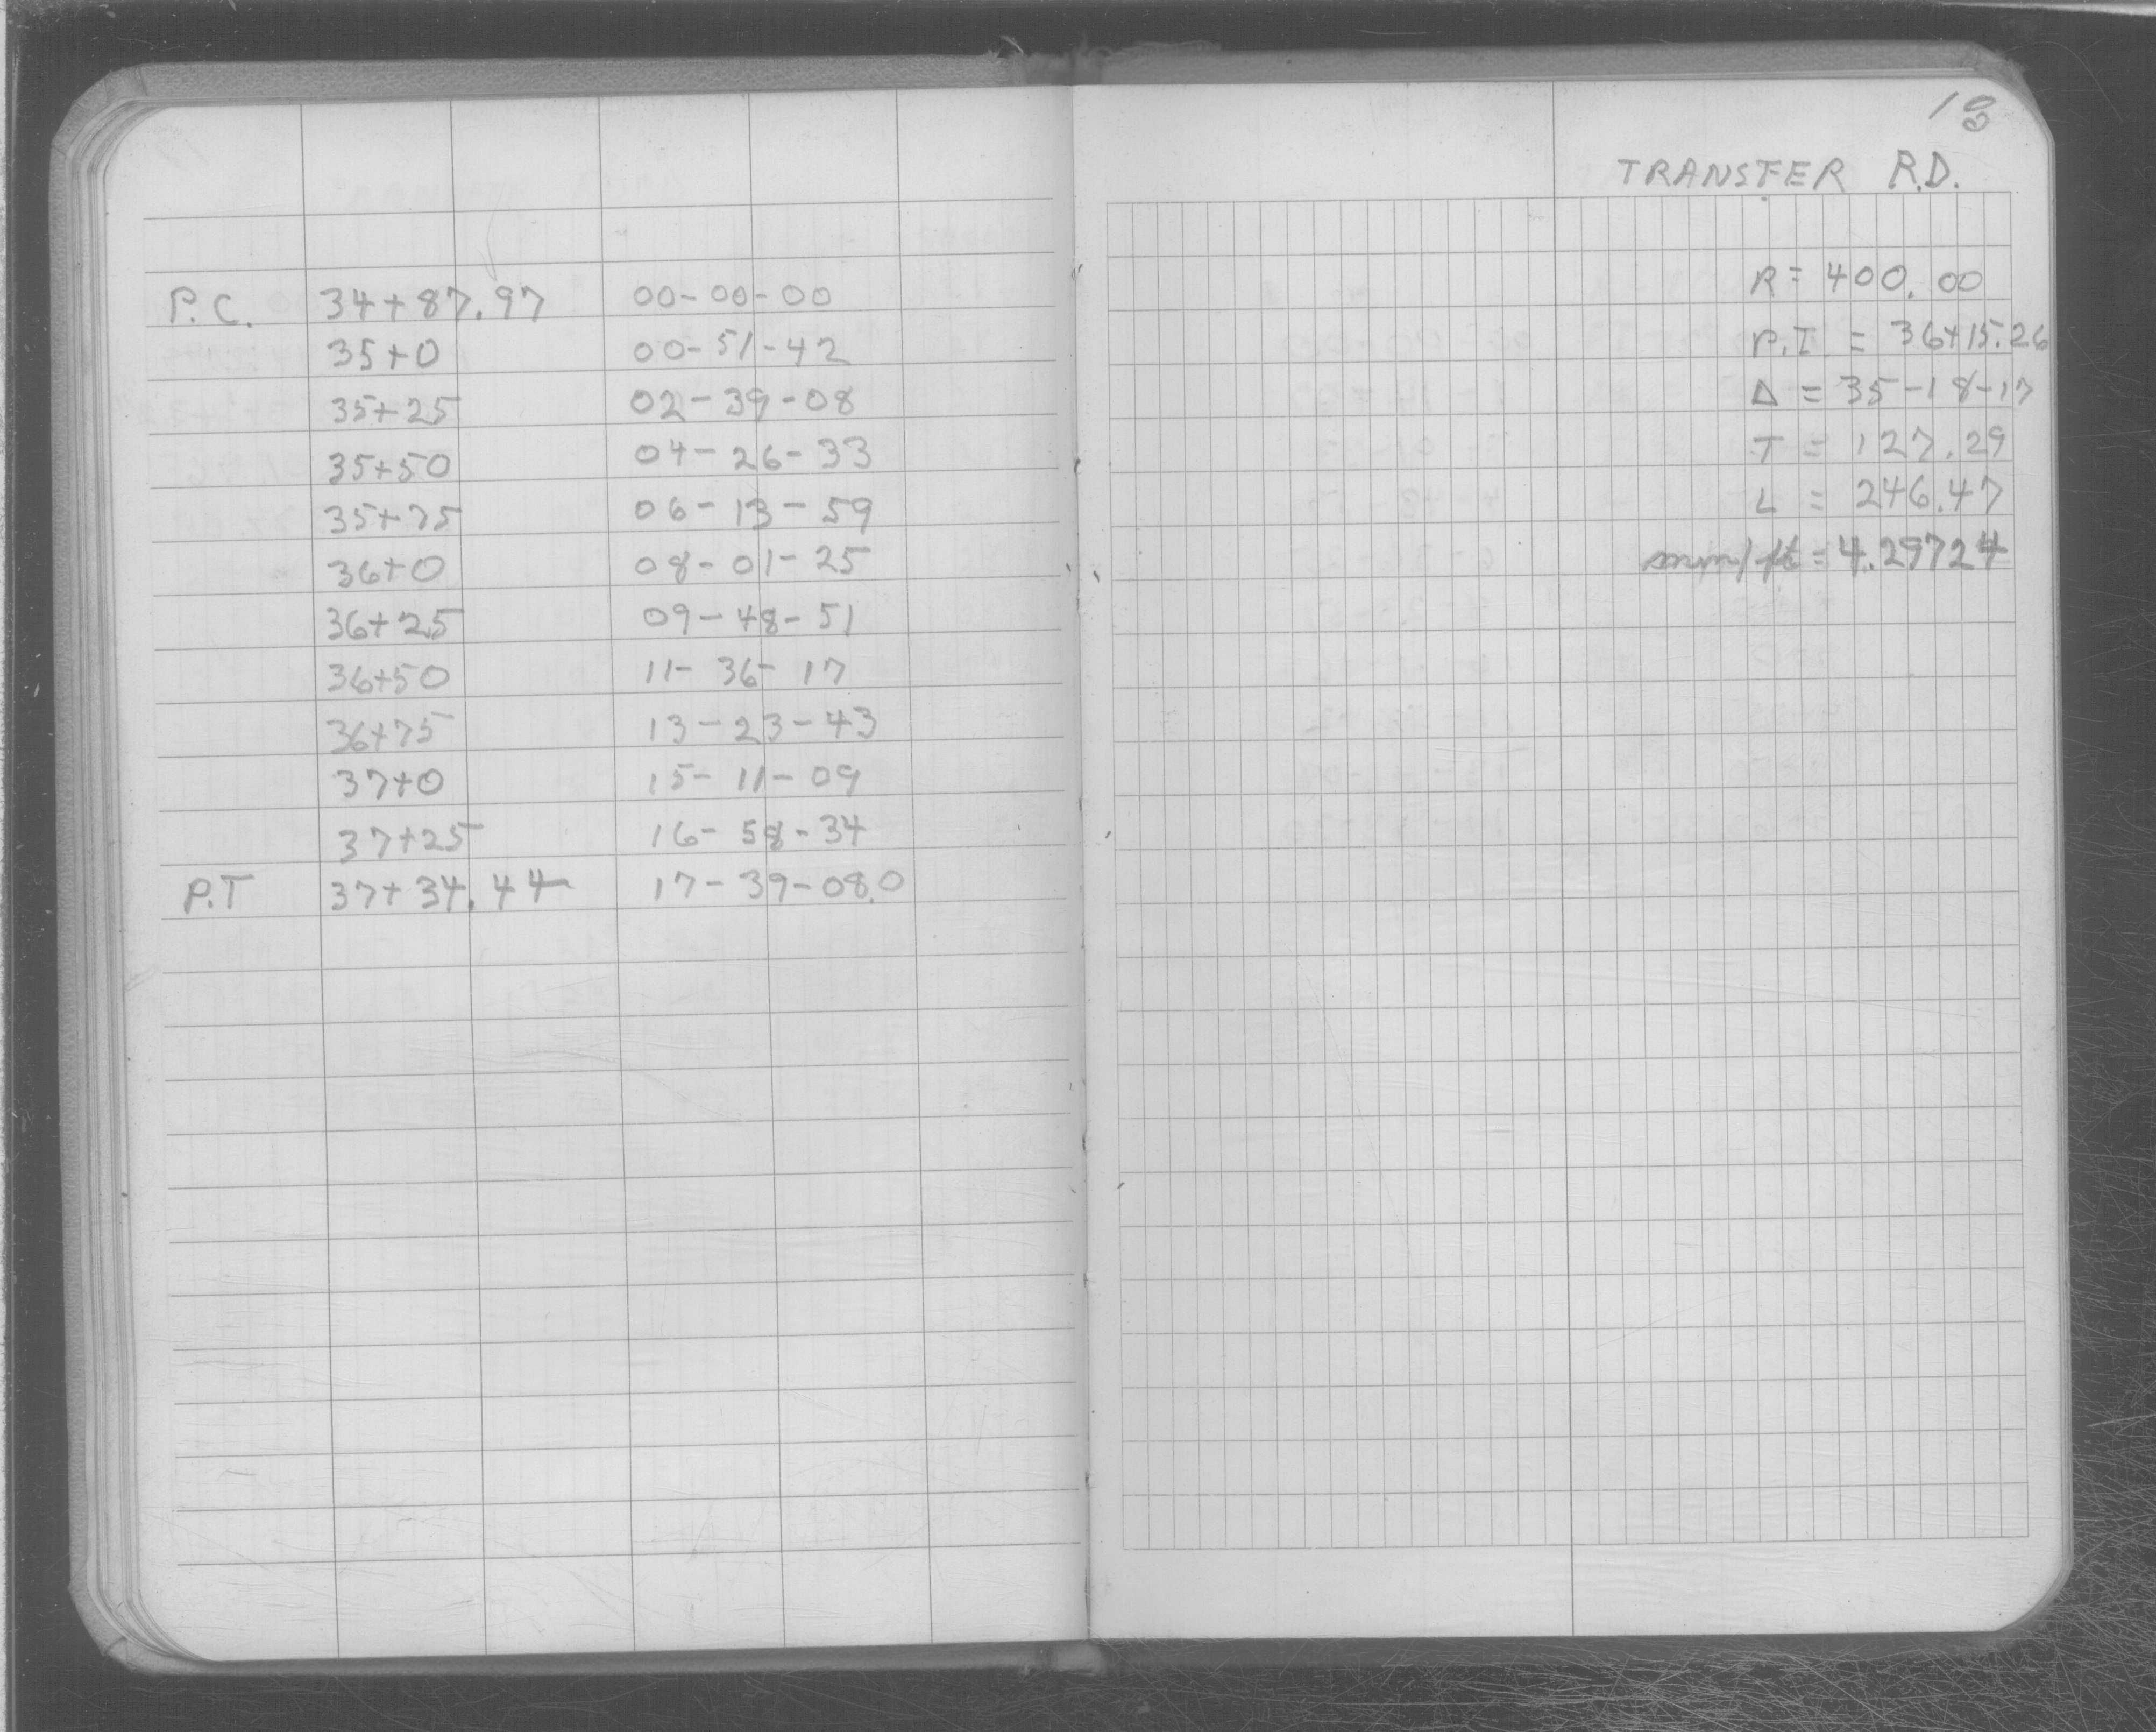 P.C. 34+87.97 00-00-00
35+0 00-51-42
35+25 02-39-08
35+50 04-26-33
35+75 06-13-59
36+0 08-01-25
36+25 09-48-51
36+50 11-36-17
36+75 13-23-43
37+0 15-11-09
37+25 16-58-34
P.T 37+34.44 17-39-08.0
18
TRANSFER R.D.
R = 400.00
P.I = 36+15.26
Δ = 35-18-17
T = 127.29
L = 246.47
min/ft = 4.29724